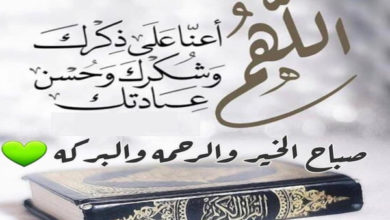 اللَّهُمَّ
أعنّا عَلَى ذِكرِكَ
وَشُكرِكَ وَحُسْن
عِبَادتِكَ
صباح الخير والرحمه والبركه
القرآن الكريم